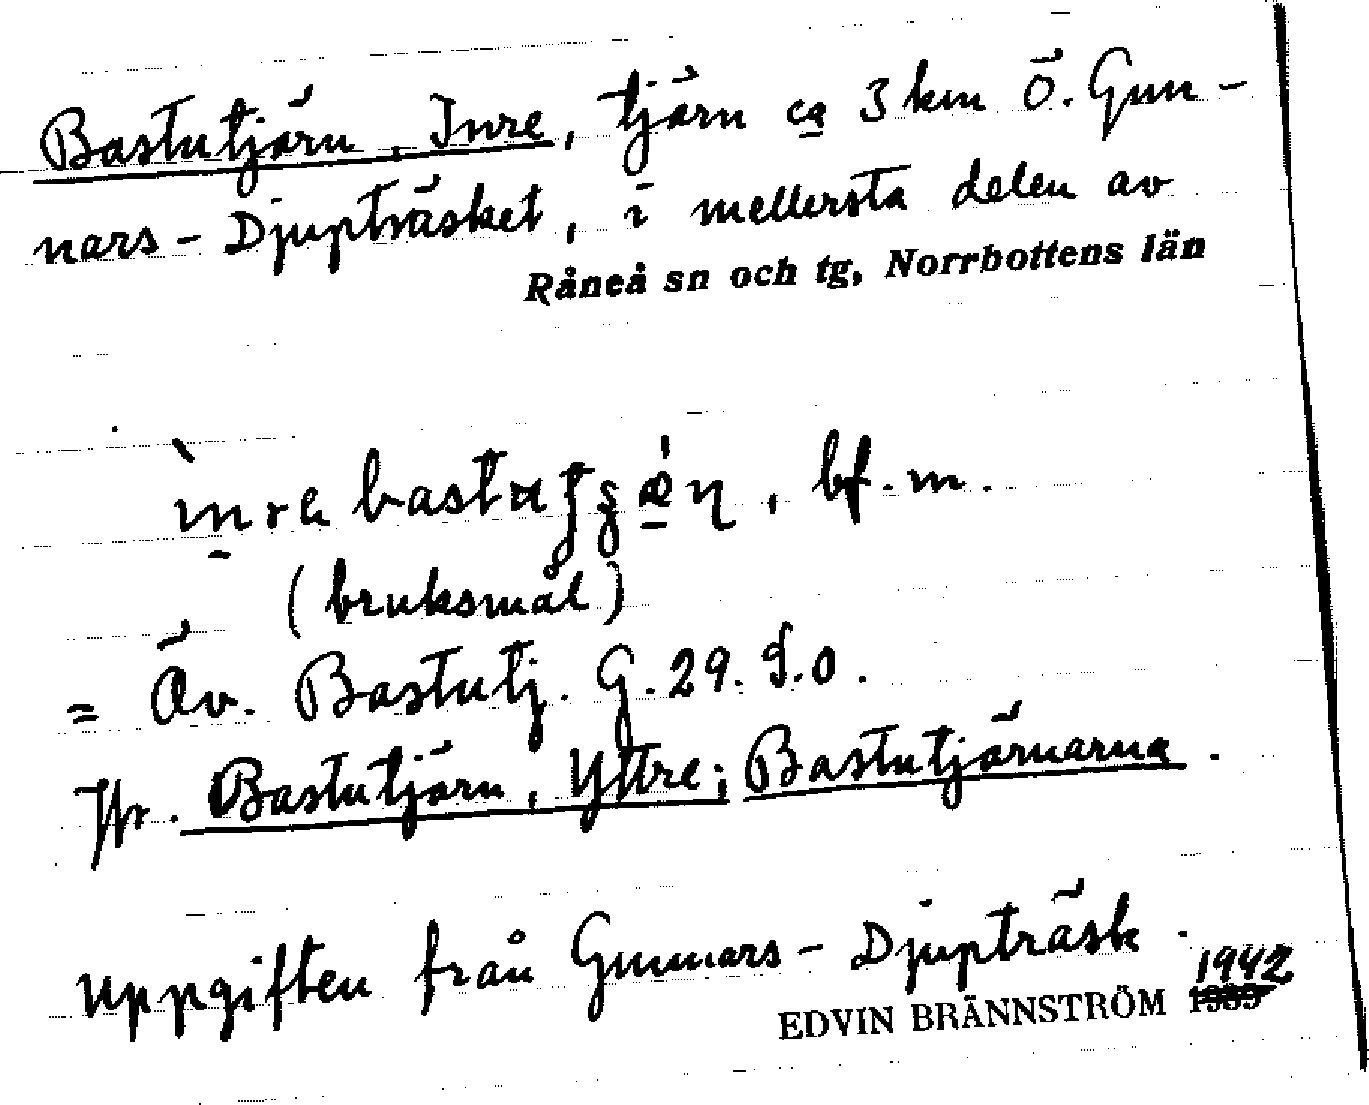 Bastutjärn, Inre, tjärn ca 3 km Ö. Gun-
nars-Djupträsket, i mellersta delen av
Råneå sn och tg, Norrbottens län
bf. m.
(bruksmål)
= Öv. Bastutj. G. 29. S.O.
Jfr. Bastutjärn, Yttre; Bastutjärnarna.
Uppgiften från Gunnars-Djupträsk.
EDVIN BRÄNNSTRÖM 1942